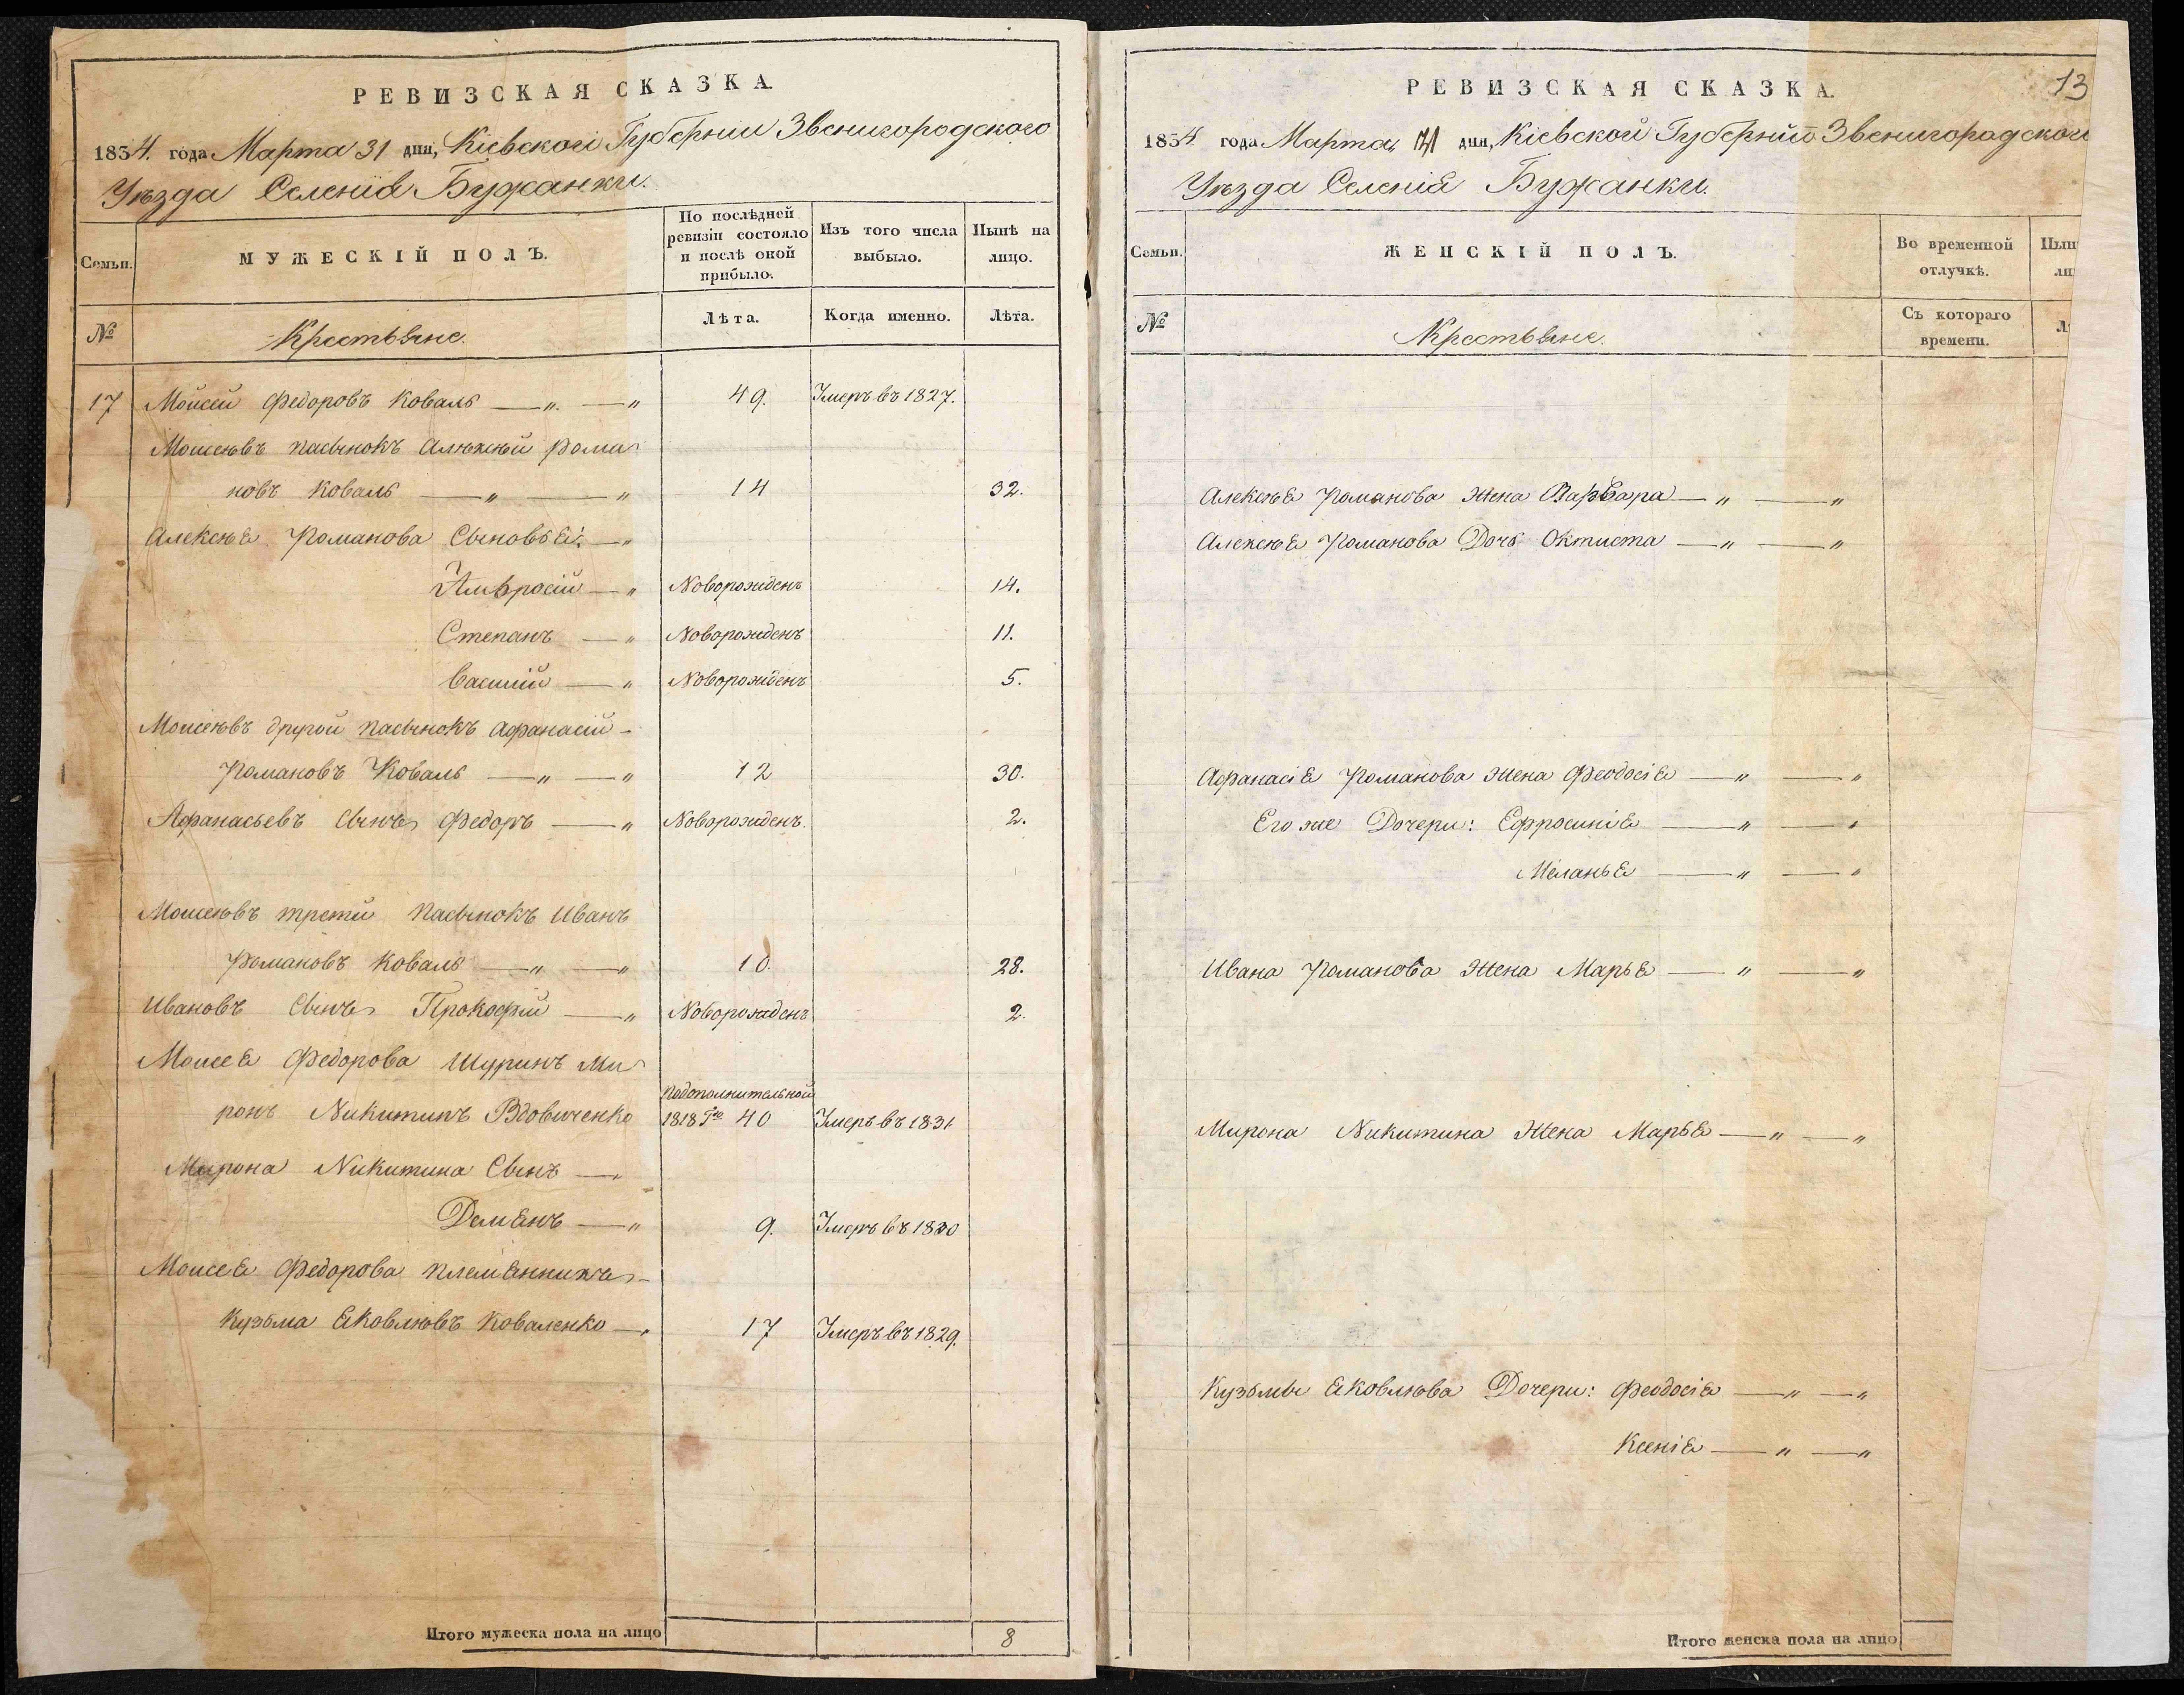 РЕВИЗСКАЯ СКАЗКА.
1834. года Марта 31 дня, Кіевской Губерніи Звенигородского
Уѣзда Селенія Бужанки.
Семьи.
МУЖЕСКІЙ ПОЛЪ.
По послѣдней ревизіи состояло и послѣ оной прибыло.
Изъ того числа выбыло.
Нынѣ на лицо.
№
Крестьяне.
Лѣта.
Когда именно.
Лѣта.
17 Мойсей Федоровъ Коваль —„— „ 49. Умеръ въ 1827.
Моисеѣвъ пасынокъ Алѣксѣй Рома-
новъ Коваль —„— „ 14 32.
Алексѣя Романова Сыновья: —„
Амвросій —„ Новорожденъ 14.
Степанъ —„ Новорожденъ 11.
Василій —„ Новорожденъ 5.
Моисеѣвъ другой пасынокъ Афанасій -
Романовъ Коваль —„— „ 12 30.
Афанасьевъ Сынъ Федоръ —„ Новорожденъ. 2.
Моисеѣвъ третій пасынокъ Иванъ
Романовъ Коваль —„— „ 10. 28.
Ивановъ Сынъ Прокофій —„ Новорожденъ 2.
Моисея Федорова Шуринъ Ми-
ронъ Никитинъ Вдовиченко подополнительной 1818 Го 40 Умеръ въ 1831
Мирона Никитина Сынъ —„
Демянъ —„ 9. Умеръ въ 1830
Моисея Федорова племянникъ -
Кузьма Яковлѣвъ Коваленко —„ 17 Умеръ въ 1829.
Итого мужеска пола на лицо 8
13
РЕВИЗСКАЯ СКАЗКА.
1834 года Марта 31 дня, Кіевской Губерніи Звенигородского
Уѣзда Селенія Бужанки.
Семьи.
ЖЕНСКІЙ ПОЛЪ.
Во временной отлучкѣ.
Нын
ли
№
Крестьяне.
Съ котораго времени.
Л
Алексѣя Романова жена Варвара —„— „
Алексѣя Романова Дочь Октиста —„— „
Афанасія Романова жена Феодосія —„— „
Его же Дочери: Ефросинія —„— „
Меланья —„— „
Ивана Романова Жена Марья —„— „
Мирона Никитина Жена Марья —„— „
Кузьмы Яковлѣва Дочери: Феодосія —„— „
Ксенія —„— „
Итого женска пола на лицо